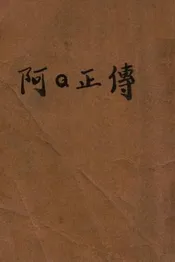 阿Q正傳